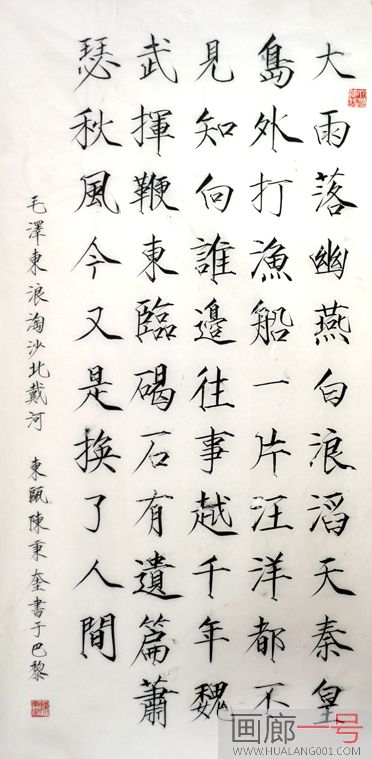 大雨落幽燕白浪滔天秦皇
島外打漁船一片汪洋都不
見知向誰邊往事越千年魏
武揮鞭東臨碣石有遺篇蕭
瑟秋風今又是換了人間
毛澤東浪淘沙北戴河 東甌陳秉奎書于巴黎
画廊一号
WWW.HUALANG001.COM